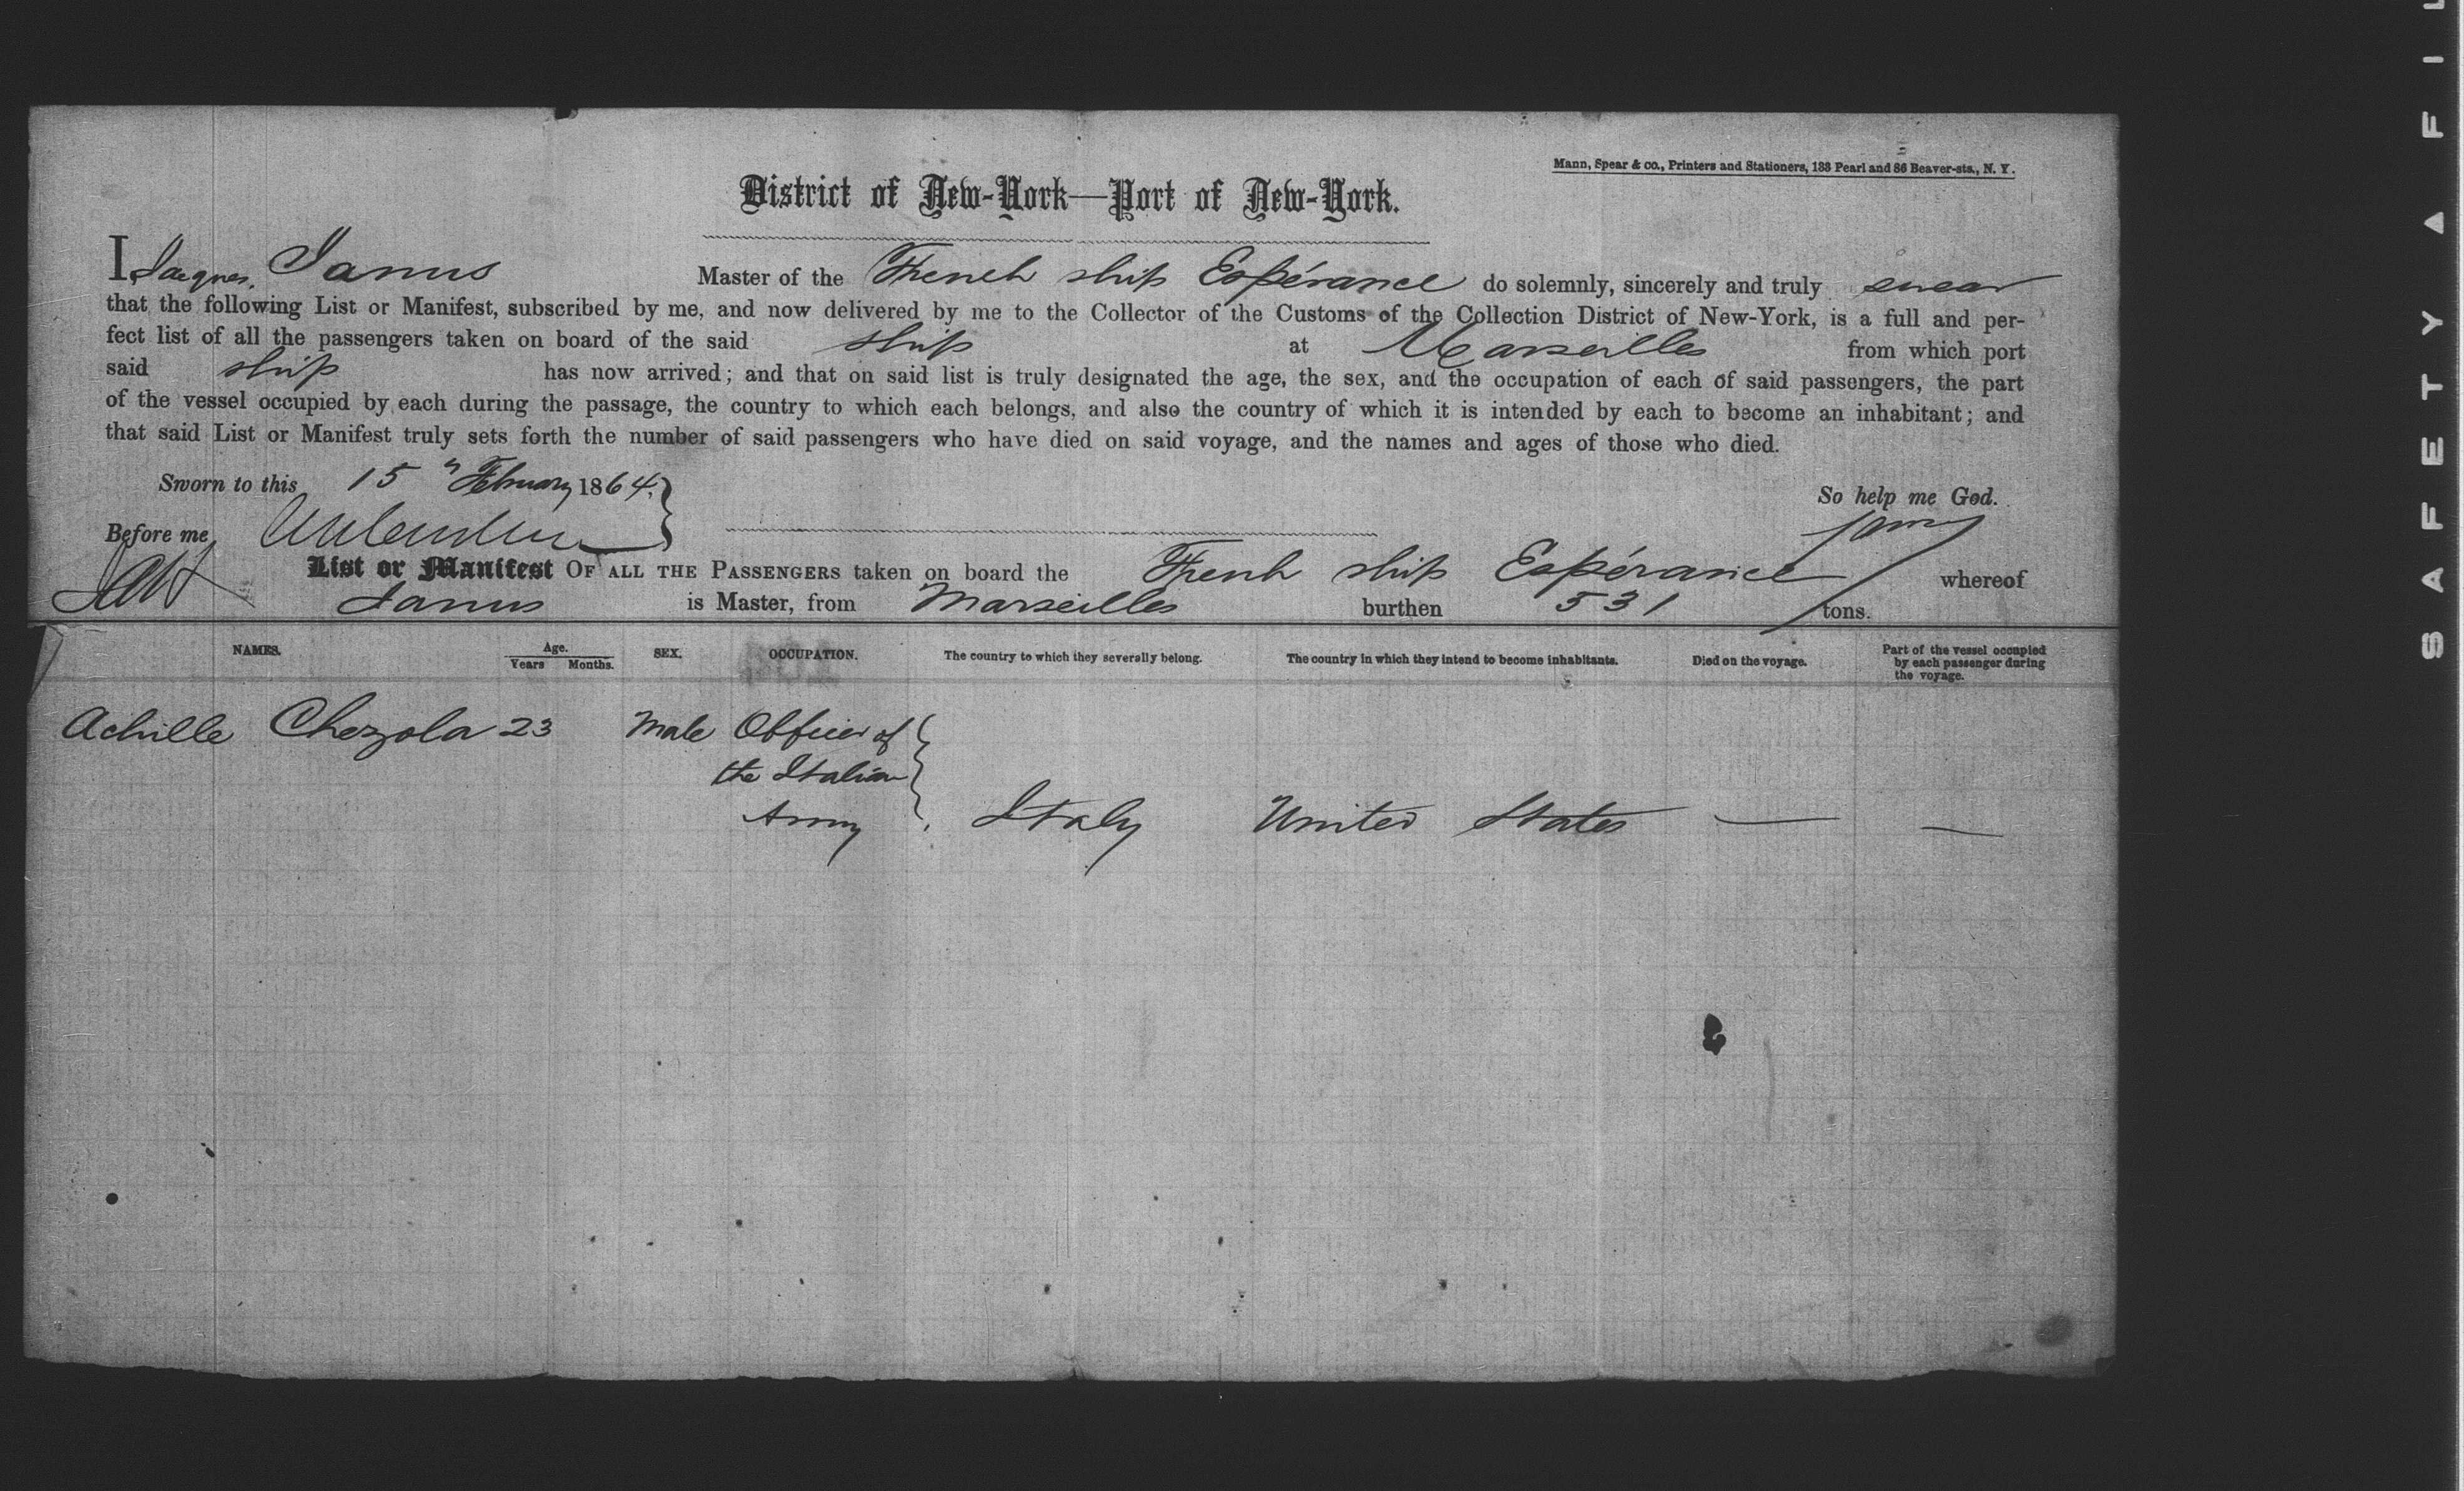 Mann, Spear & co., Printers and Stationers, 133 Pearl and 86 Beaver-sts., N. Y.
District of New-York—Port of New-York.
I, Jaques Janus Master of the French ship Espérance do solemnly, sincerely and truly swear
that the following List or Manifest, subscribed by me, and now delivered by me to the Collector of the Customs of the Collection District of New-York, is a full and per-
fect list of all the passengers taken on board of the said ship at Marseilles from which port
said ship has now arrived; and that on said list is truly designated the age, the sex, and the occupation of each of said passengers, the part
of the vessel occupied by each during the passage, the country to which each belongs, and also the country of which it is intended by each to become an inhabitant; and
that said List or Manifest truly sets forth the number of said passengers who have died on said voyage, and the names and ages of those who died.
Sworn to this 15 " February 1864. So help me God.
Before me
List or Manifest OF ALL THE PASSENGERS taken on board the French ship Espérance whereof
Janus is Master, from Marseilles burthen 531 tons.
NAMES. Age. Years Months. SEX. OCCUPATION. The country to which they severally belong. The country in which they intend to become inhabitants. Died on the voyage. Part of the vessel occupied by each passenger during the voyage.
Achille Chezola 23 Male Officer of
the Italian
Army Italy United States — —
SAFETY ▲ FIL